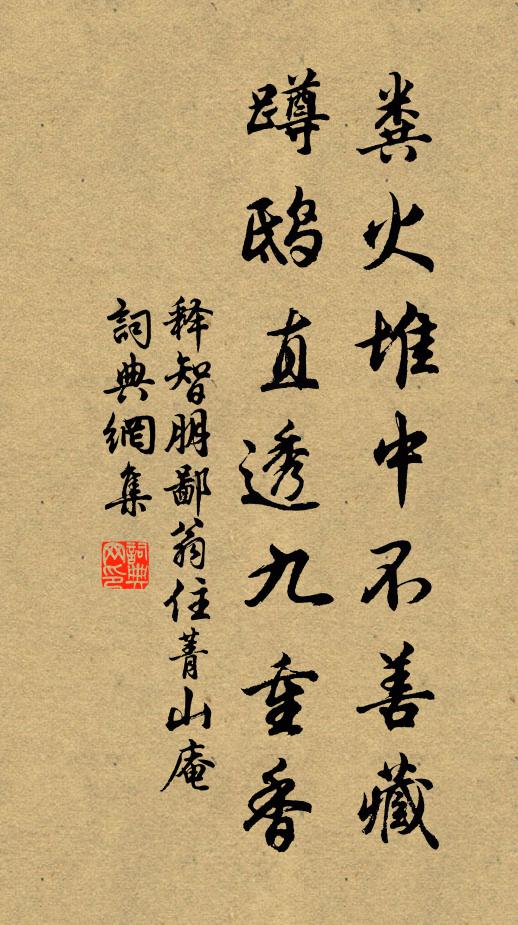 粪火堆中不善藏
蹲鸱直透九重香
释智朋鄙翁住菁山庵
詞典網集
詞典網印